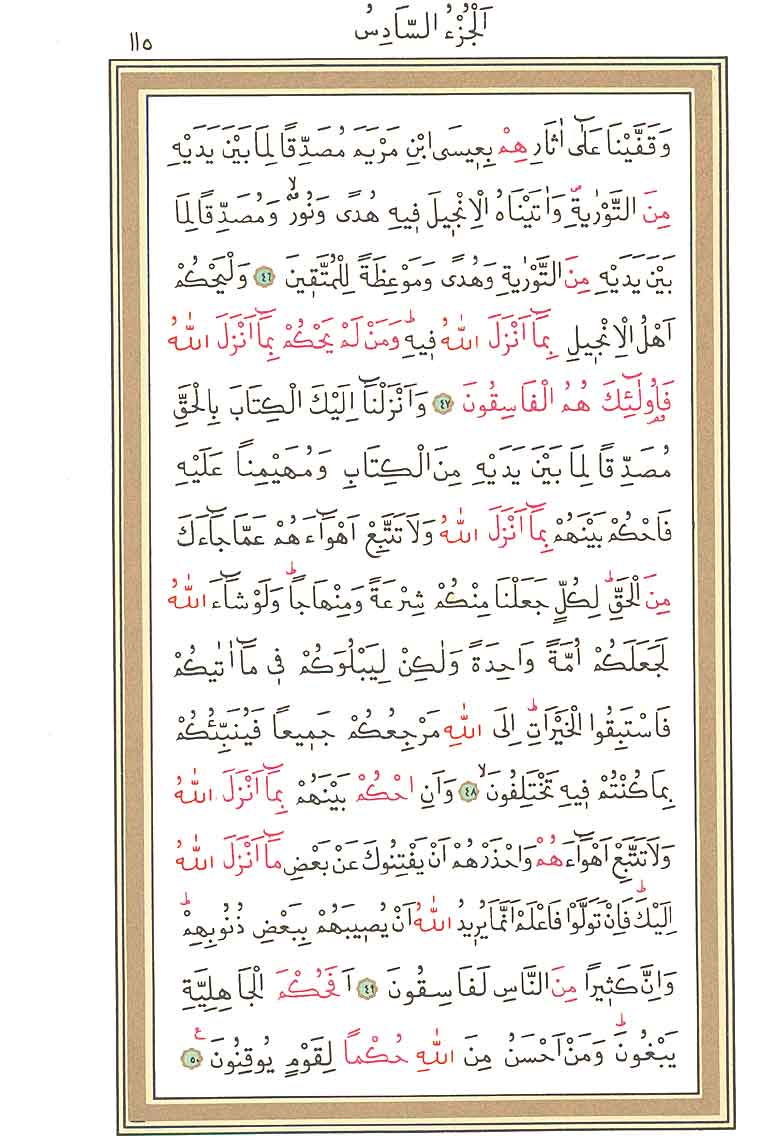 اَلْجُزْءُ السَّادِسُ
١١٥
وَقَفَّيْنَا عَلٰٓى اٰثَارِهِمْ بِعِيسَى ابْنِ مَرْيَمَ مُصَدِّقًا لِمَا بَيْنَ يَدَيْهِ
مِنَ التَّوْرٰيةِۖ وَاٰتَيْنَاهُ الْاِنْج۪يلَ ف۪يهِ هُدًى وَنُورٌۙ وَمُصَدِّقًا لِمَا
بَيْنَ يَدَيْهِ مِنَ التَّوْرٰيةِ وَهُدًى وَمَوْعِظَةً لِلْمُتَّق۪ينَ ٤٦ وَلْيَحْكُمْ
اَهْلُ الْاِنْج۪يلِ بِمَٓا اَنْزَلَ اللّٰهُ ف۪يهِۜ وَمَنْ لَمْ يَحْكُمْ بِمَٓا اَنْزَلَ اللّٰهُ
فَاُو۬لٰٓئِكَ هُمُ الْفَاسِقُونَ ٤٧ وَاَنْزَلْنَٓا اِلَيْكَ الْكِتَابَ بِالْحَقِّ
مُصَدِّقًا لِمَا بَيْنَ يَدَيْهِ مِنَ الْكِتَابِ وَمُهَيْمِنًا عَلَيْهِ
فَاحْكُمْ بَيْنَهُمْ بِمَٓا اَنْزَلَ اللّٰهُ وَلَا تَتَّبِعْ اَهْوَٓاءَهُمْ عَمَّا جَٓاءَكَ
مِنَ الْحَقِّۜ لِكُلٍّ جَعَلْنَا مِنْكُمْ شِرْعَةً وَمِنْهَاجًاۜ وَلَوْ شَٓاءَ اللّٰهُ
لَجَعَلَكُمْ اُمَّةً وَاحِدَةً وَلٰكِنْ لِيَبْلُوَكُمْ ف۪ي مَٓا اٰتٰيكُمْ
فَاسْتَبِقُوا الْخَيْرَاتِۜ اِلَى اللّٰهِ مَرْجِعُكُمْ جَم۪يعًا فَيُنَبِّئُكُمْ
بِمَا كُنْتُمْ ف۪يهِ تَخْتَلِفُونَۙ ٤٨ وَاَنِ احْكُمْ بَيْنَهُمْ بِمَٓا اَنْزَلَ اللّٰهُ
وَلَا تَتَّبِعْ اَهْوَٓاءَهُمْ وَاحْذَرْهُمْ اَنْ يَفْتِنُوكَ عَنْ بَعْضِ مَٓا اَنْزَلَ اللّٰهُ
اِلَيْكَۜ فَاِنْ تَوَلَّوْا فَاعْلَمْ اَنَّمَا يُر۪يدُ اللّٰهُ اَنْ يُص۪يبَهُمْ بِبَعْضِ ذُنُوبِهِمْۜ
وَاِنَّ كَث۪يرًا مِنَ النَّاسِ لَفَاسِقُونَ ٤٩ اَفَحُكْمَ الْجَاهِلِيَّةِ
يَبْغُونَۜ وَمَنْ اَحْسَنُ مِنَ اللّٰهِ حُكْمًا لِقَوْمٍ يُوقِنُونَ۟ ٥٠